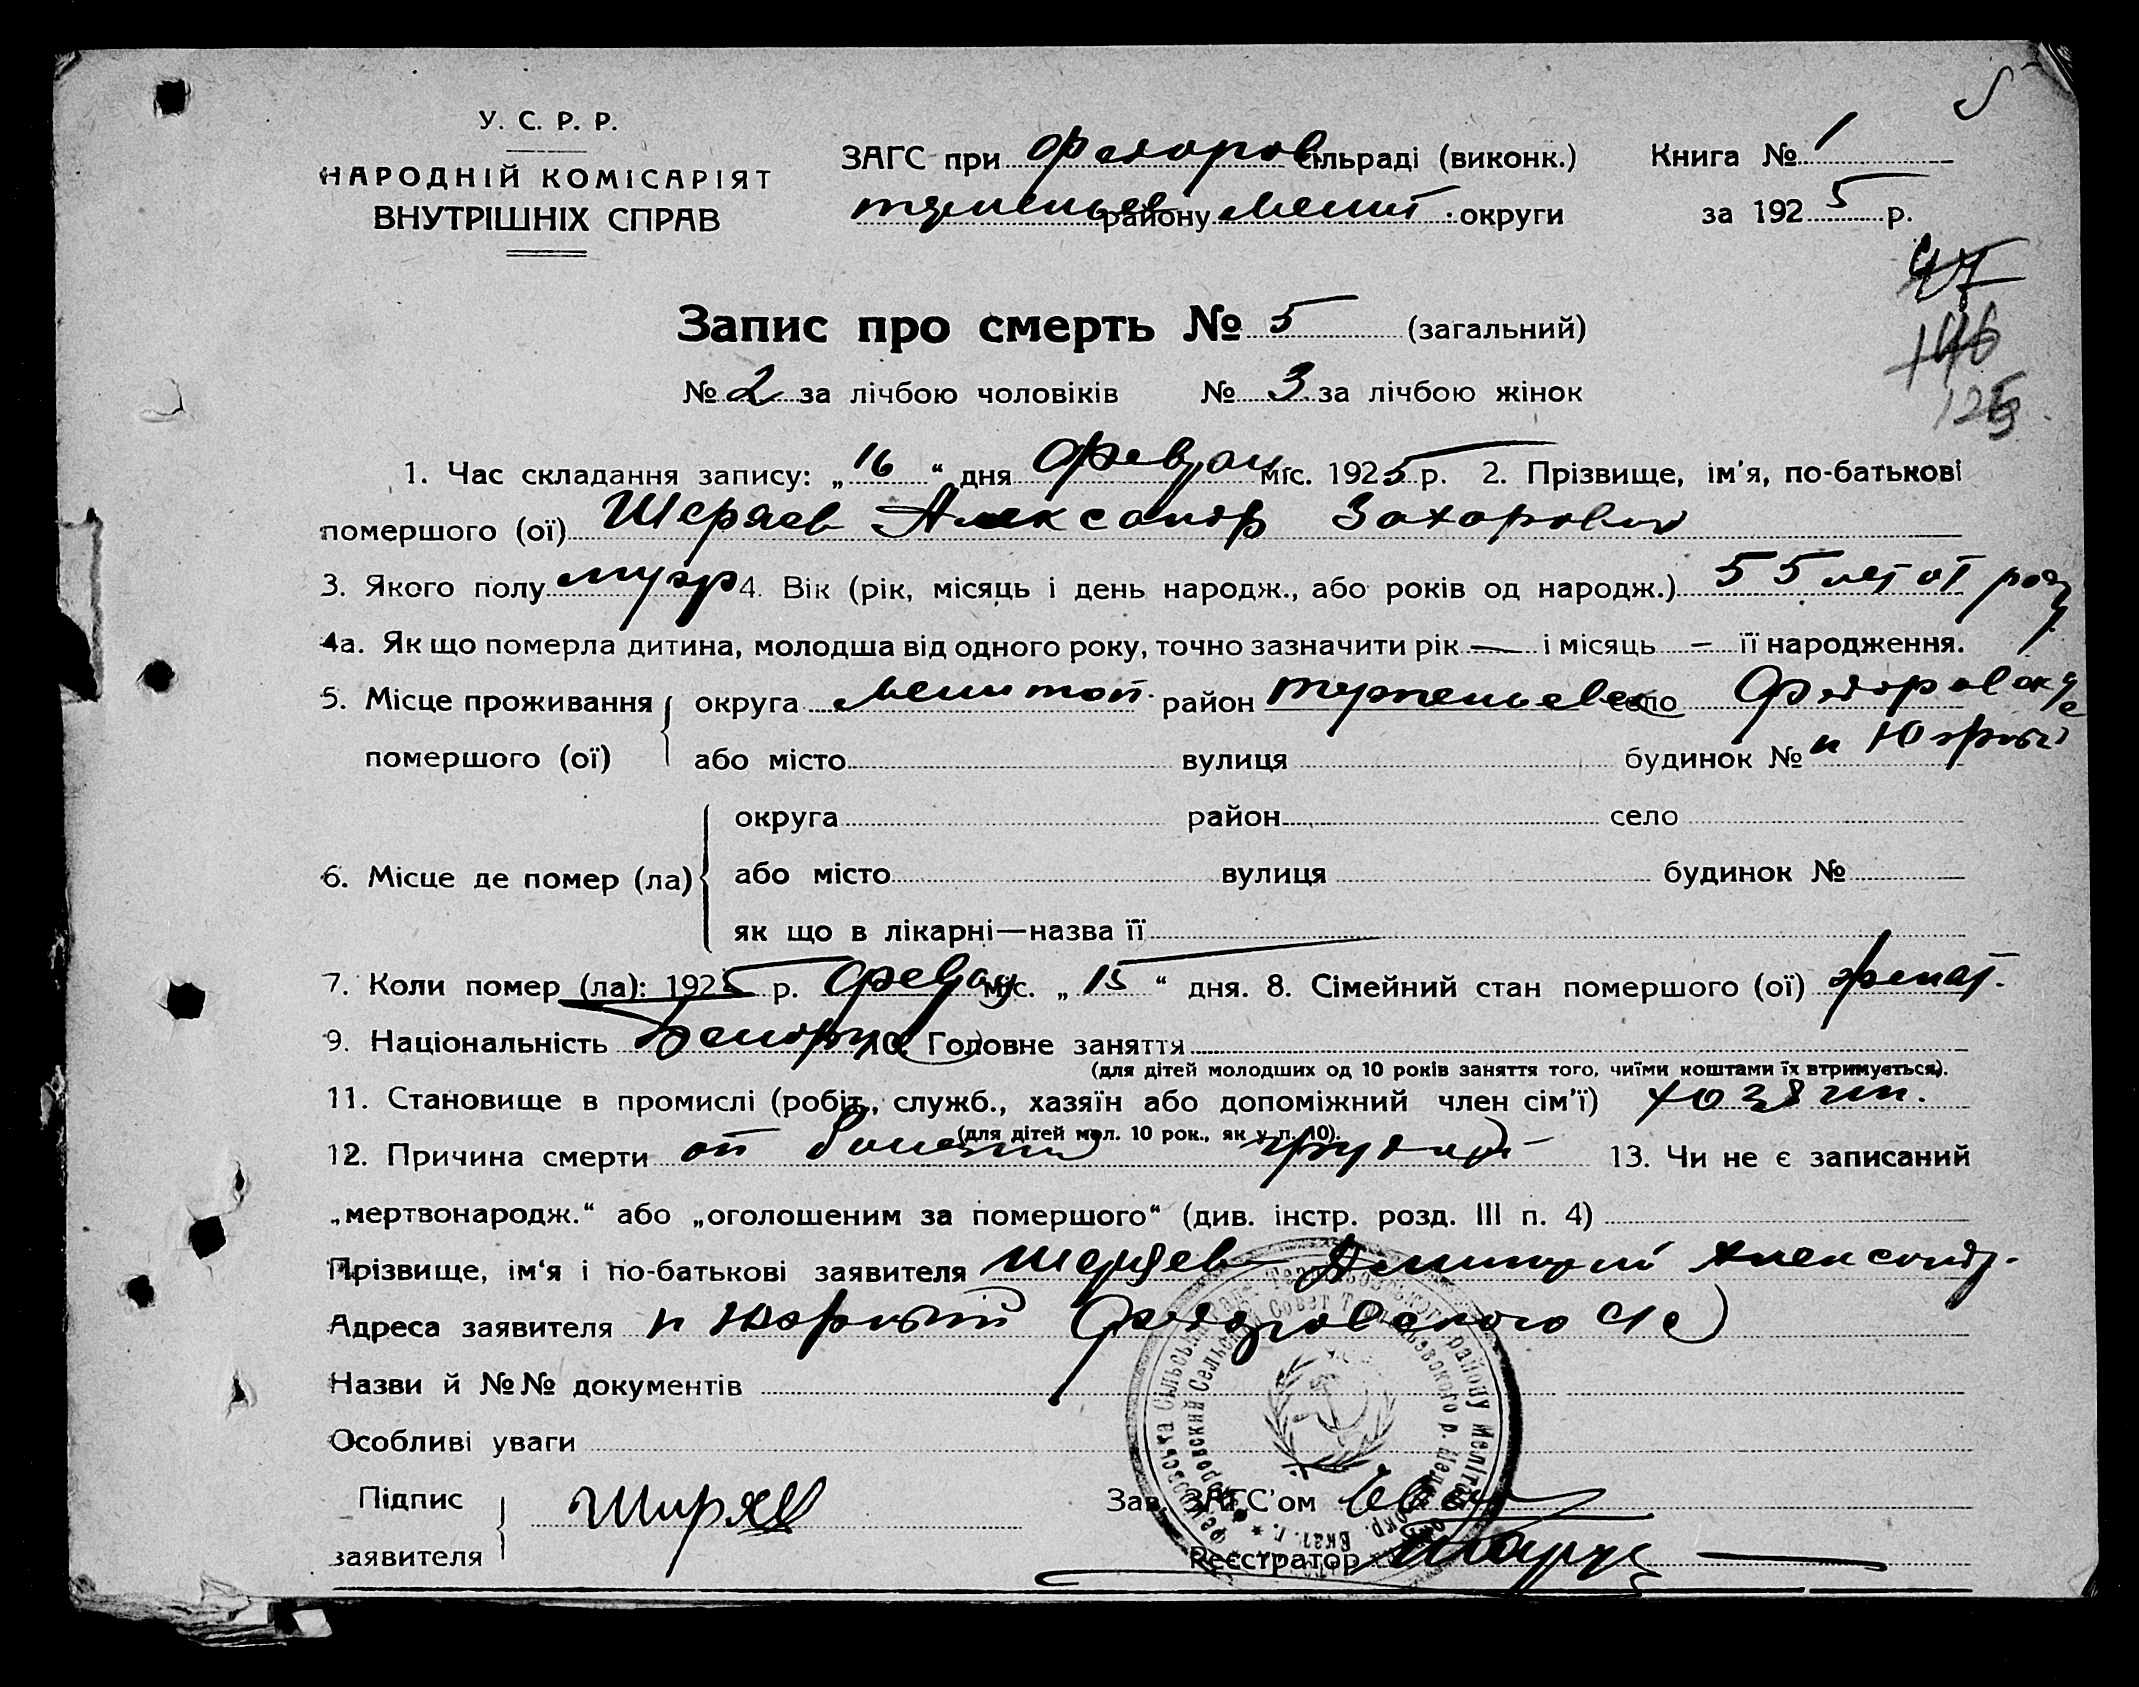 У. С. Р. Р.
НАРОДНІЙ КОМІСАРІЯТ
ВНУТРІШНІХ СПРАВ
ЗАГС при Федоров сільраді (виконк.)
району Мелит. округи
Книга № 1
за 1925 р.
47
146
Запис про смерть № 5 (загальний)
№ 2 за лічбою чоловіків № 3 за лічбою жінок
1. Час складання запису: „16“ дня Феврал міс. 1925 р. 2. Прізвище, ім'я, по-батькові
помершого (ої) Шеряев Александр Захарович
3. Якого полу муж 4. Вік (рік, місяць і день народж., або років од народж.) 55 лет от роду
4а. Як що померла дитина, молодша від одного року, точно зазначити рік — і місяць — її народження.
5. Місце проживання округа Мелитоп. район село Федоровка
помершого (ої) або місто вулиця будинок № п Юрный
6. Місце де помер (ла) округа район село
або місто вулиця будинок №
як що в лікарні—назва її
7. Коли помер (ла): 1925 р. Феврал міс. „15“ дня. 8. Сімейний стан помершого (ої) женат.
9. Національність Белорус 10. Головне заняття
(для дітей молодших од 10 років заняття того, чиїми коштами їх втримується).
11. Становище в промислі (робіт., служб., хазяїн або допоміжний член сім'ї) хозяин.
(для дітей мол. 10 рок., як у п. 10).
12. Причина смерти от болезни грудей 13. Чи не є записаний
„мертвонародж.“ або „оголошеним за помершого“ (див. інстр. розд. III п. 4)
Прізвище, ім'я і по-батькові заявителя Шеряев Димитрий Александр.
Адреса заявителя п Юрный Федоровского с/с
Назви й №№ документів
Особливі уваги
Підпис
заявителя Ширяев
Зав. ЗАГС'ом
Реєстратор